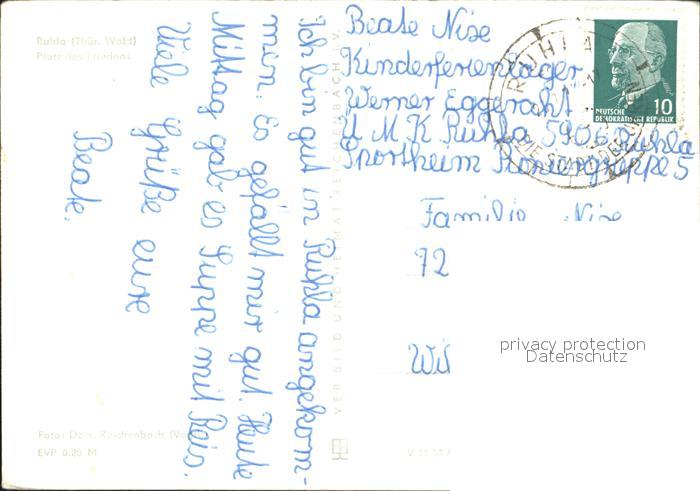 Ruhla (Thür. Wald)
Platz des Friedens
Ich bin gut in Ruhla angekom-
men. Es gefällt mir gut. Heute
Mittag gab es Suppe mit Reis.
Viele Grüße eure
Beate.
Beate Nise
Kinderferienlager
Werner Eggeraht
U M K Ruhla 5906 Ruhla
Sportheim Pioniergruppe 5
Familie Nise
92
Wil
RUHLA
DEUTSCHE
DEMOKRATISCHE REPUBLIK
10
VERLAG BILD UND HEIMAT REICHENBACH I. V.
Foto: Darr, Reichenbach (Vo
EVP 0.20 M
V 11 53 /
privacy protection
Datenschutz